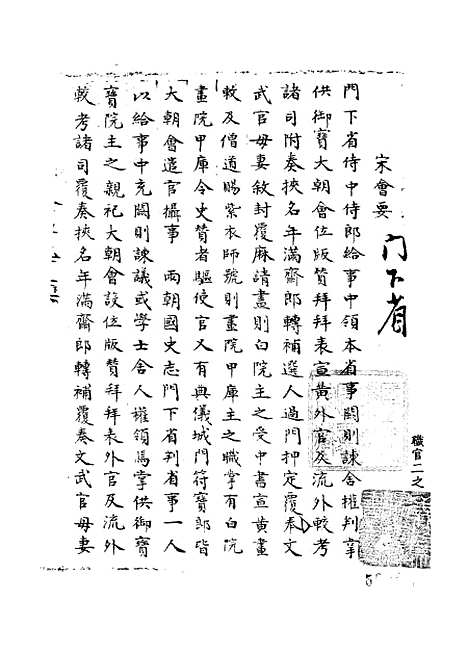 職官二之
宋會要
門下省
門下省侍中侍郎給事中領本省事闕則諫舍權判掌
供御寶大朝會位版贊拜拜表宣黃外官及流外較考
諸司附奏挾名年滿齋郎轉補選人過門押定覆奏文
武官母妻敘封覆麻請畫則白院主之受中書宣黃畫
敕及僧道賜紫衣師號則畫院甲庫主之職掌有白院
畫院甲庫令史贊者驅使官又有典儀城門符寶郎皆
大朝會遣官攝事 兩朝國史志門下省判省事一人
以給事中充闕則諫議或學士舍人權領焉掌供御寶
寶院主之親祀大朝會設位版贊拜拜表外官及流外
較考諸司覆奏挾名年滿齋郎轉補覆奏文武官母妻